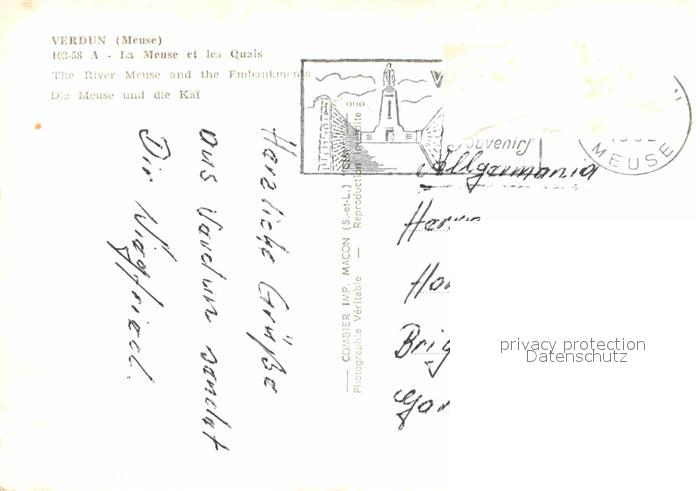 VERDUN (Meuse)
103-58 A - La Meuse et les Quais
The River Meuse and the Embankments
Die Meuse und die Kaï
Herzliche Grüße
aus Verdun sendet
Dir Siegfried.
COMBIER IMP. MACON (S.-et-L.)
Photographie Véritable — Reproduction interdite
Souvenirs
MEUSE
Allgermania
Herrn
Brig
privacy protection
Datenschutz